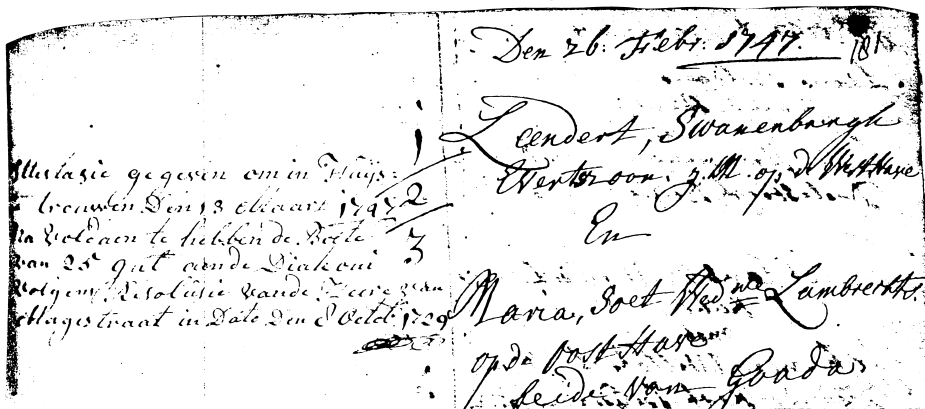 Den 26: Febr: 1747.
181
Leendert, Swanenburgh
Evertszoon. j:M. op de WestHave
En
Maria, Soet Wedwe Lambrechts
op de Oost Have
beide van Gouda
1
2
3
Attestasie gegeven om in Huys-
te trouwen Den 13 Maart 1747
na voldaen te hebben de Boete
van 25 gul aande Diakoni
volgens Resolusie vande Heere van
Magestraat in Date Den 8 Octob 1729